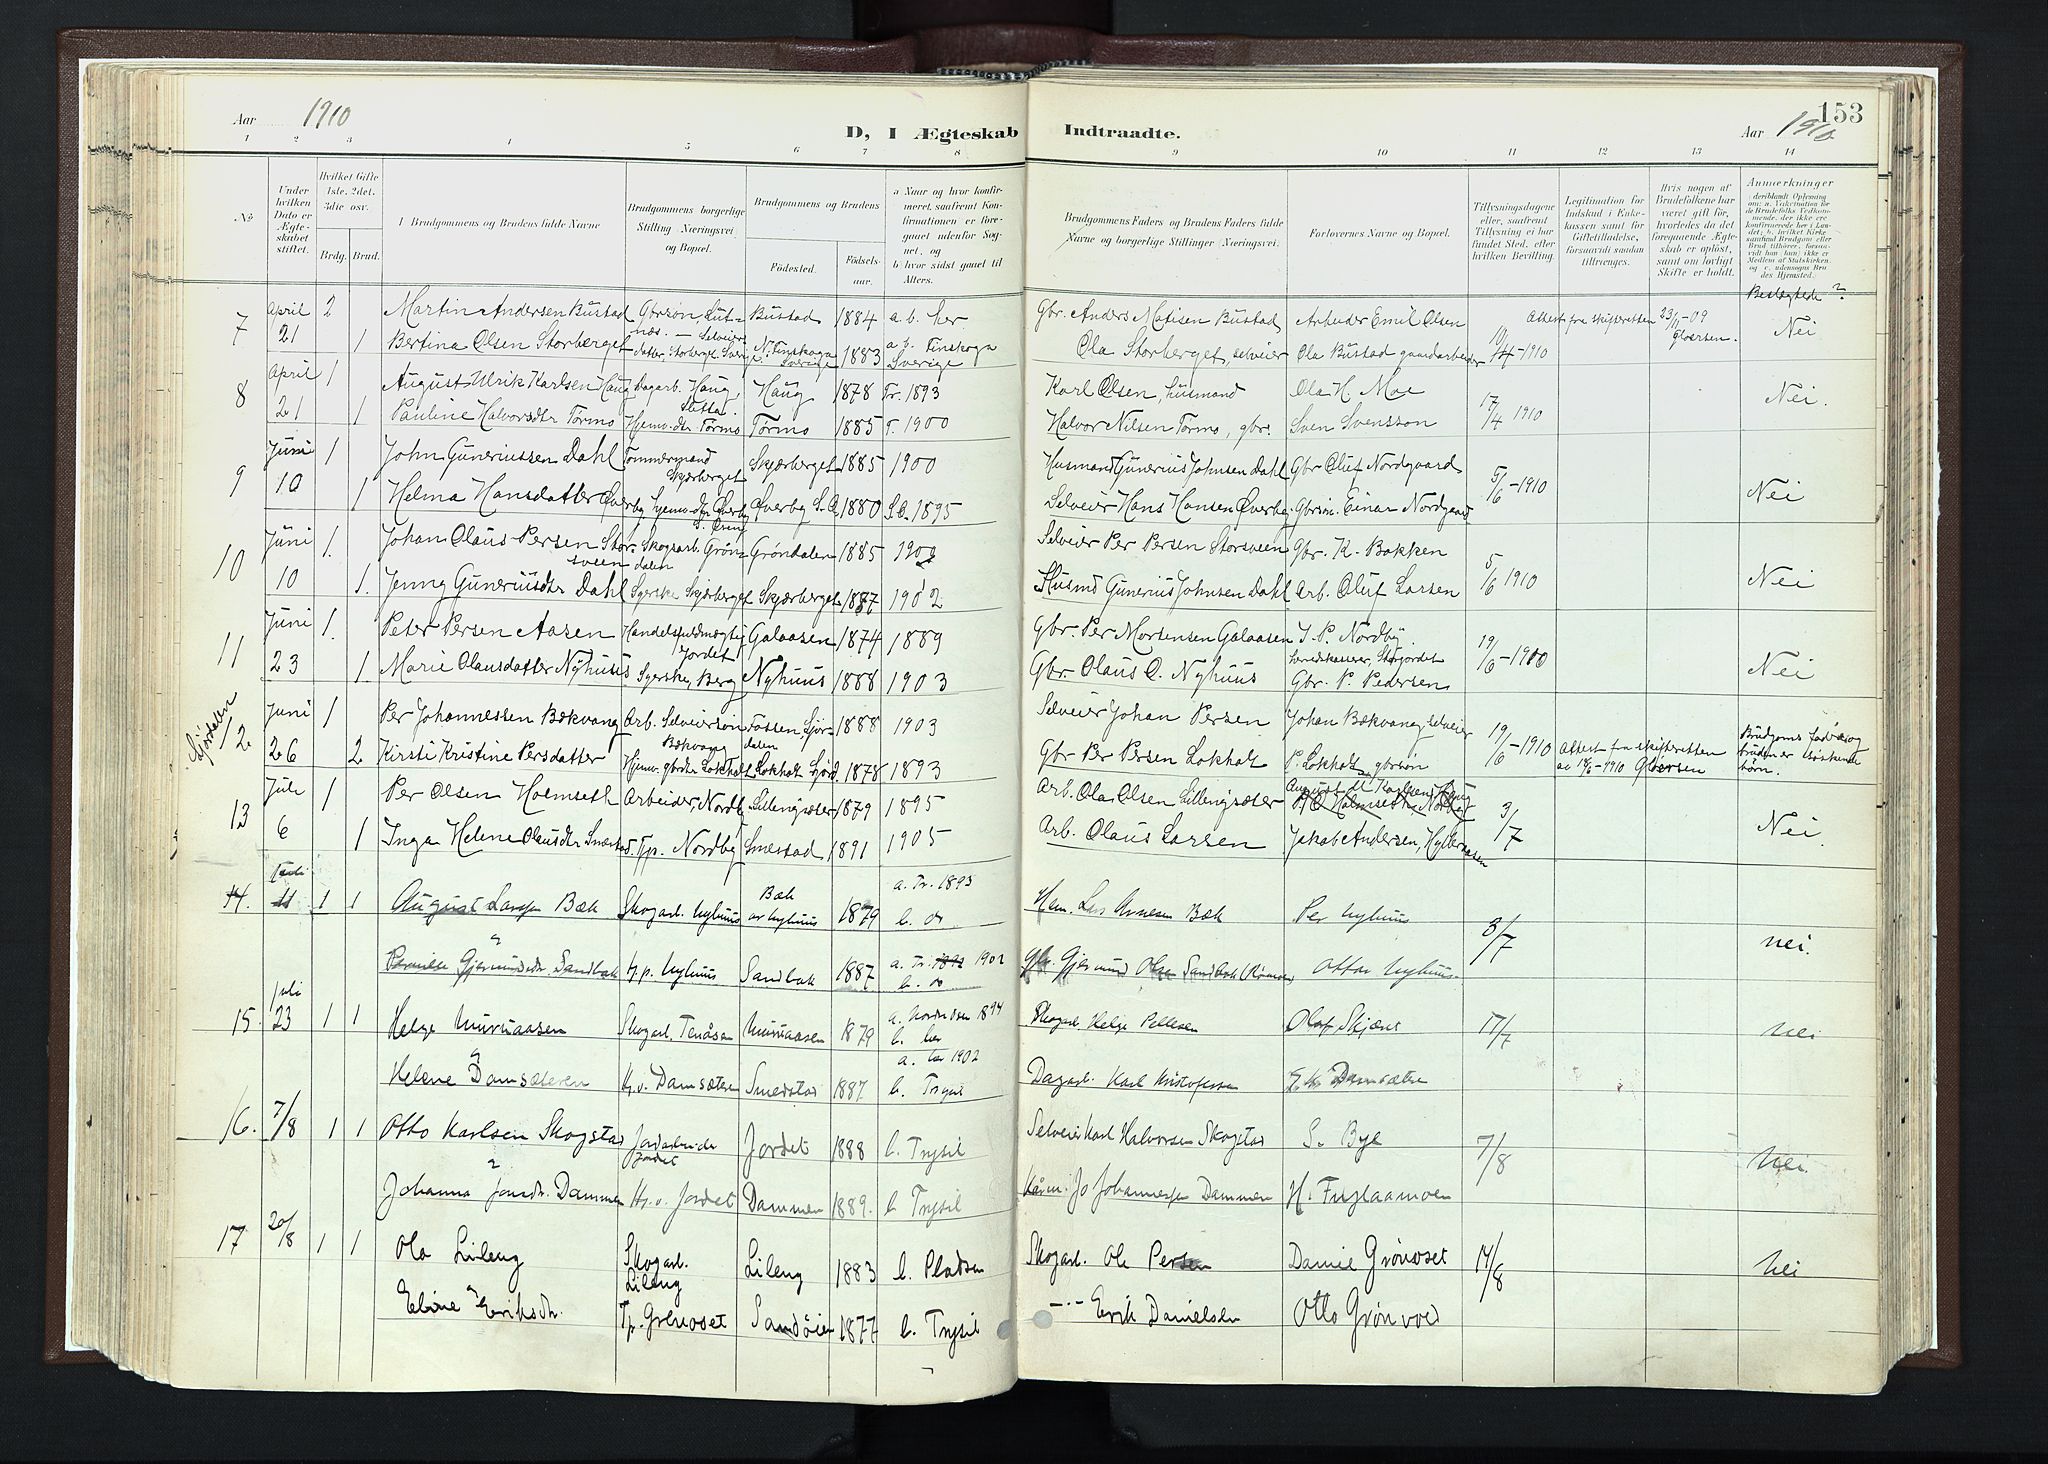 153
Aar 1910
D, I Ægteskab Indtraadte.
Aar 1910
1 2 3 4 5 6 7 8 9 10 11 12 13 14
No
Under hvilken Dato er Ægteskabet stiftet.
Hvilket Gifte 1ste, 2det, 3die osv.
Brdg. Brud.
Brudgommens og Brudens fulde Navne
Brudgommens borgerlige Stilling Næringsvei og Bopæl.
Brudgommens og Brudens
Fødested.
Fødsels-aar.
a Naar og hvor konfirmeret, saafremt Konfirmationen er foregaaet udenfor Sognet, og
b hvor sidst gaaet til Alters.
Brudgommens Faders og Brudens Faders fulde Navne og borgerlige Stillinger Næringsvei.
Forlovernes Navne og Bopæl.
Tillysningsdagene eller, saafremt Tillysning ei har fundet Sted, efter hvilken Bevilling.
Legitimation for Indskud i Enkekassen samt for Giftetilladelse, forsaavidt saadan tiltrænges.
Hvis nogen af Brudefolkene har været gift før, hvorledes da det foregaaende Ægteskab er opløst, samt om lovligt Skifte er holdt.
Anmærkninger
Beslægtede?
7 April 2 Martin Andersen Bustad Gbrsøn, Lutnæs. Bustad 1884 a. b. her Gbr. Anders Matisen Bustad Arbeider Emil Olsen Attest fra skifteretten 23/11-09 Nei
21 1 Bertina Olsen Storberget Selveierdatter Storberget Sverige N. Finskoga Sverige 1883 a. b. Finskoga Sverige Ola Storberget, selveier Ola Bustad gaardarbeider 10/4-1910
8 April 1 August Ulrik Karlsen Haug Dagarb. Haug, Haug 1878 Tr. 1893 Karl Olsen, husmand Ola H. Moe Nei.
21 1 Pauline Halvorsdtr Tørmo Hjemv. dtr Tørmo Tørmo 1885 T. 1900 Halvor Nilsen Tørmo, gbr. Sven Svensson 17/4 1910
9 Juni 1 John Guneriussen Dahl Tømmermand Skjærberget Skjærberget 1885 1900 Husmand Gunerius Johnsen Dahl Gbr Oluf Nordgaard 5/6-1910 Nei
10 1 Helma Hansdatter Øverby hjemv. dtr Øverby Øverby 1880 1895 Selveier Hans Hansen Øverby Gbrsøn. Einar Nordgaard
10 Juni 1. Johan Olaus Persen Storsveen Skogsarb. Grøndalen Grøndalen 1885 Selveier Per Persen Storsveen Gbr. K. Bakken 5/6 1910 Nei
10 1. Jenny Guneriusdtr Dahl Syerske Skjærberget Skjærberget 1887 1902 Husmd Gunerius Johnsen Dahl Arb. Oluf Larsen
11 Juni 1. Peter Persen Aasen Handelsfuldmægtig Jordet Galaasen 1874 1889 Gbr. Per Mortensen Galaasen J. P. Nordby 19/6-1910 Nei
23 1. Marie Olausdatter Nyhuus Syerske, Berg Nyhuus 1888 1903 Gbr. Olaus O. Nyhuus Gbr. P. Pedersen
12 Juni 1 Per Johannessen Bækvang Arb. Selveiersøn Bækvang Fossen, Sjørdalen 1888 1903 Selveier Johan Persen Johan Bækvang, selveier 19/6-1910 Attest fra skifteretten av 18/6-1910
26 2 Kirsti Kristine Persdatter Hjemv. gbrdtr Lokholt Lokholt 1878 1893 Gbr Per Persen Lokholt P. Lokholt gbrsøn Brudgoms far og bruden er søskendebørn.
13 Juli 1 Per Olsen Holmseth Arbeider, Nordby Lillengsæter 1879 1895 Arb. Ola Olsen Lillengsæter 3/7 Nei.
6 1 Inga Helene Olausdtr Smestad Tjp. Nordby Smestad 1891 1905 Arb. Olaus Larsen Jakob Andersen,
14. Juli 11 1 1 August Larsen Bæk Skogarb. Nyhuus Bæk av Nyhuus 1879 a. Tr. 1893 b. do Per Nyhuus 3/7 nei.
Gjermundsdtr. Sandbak Tj.p. Nyhuus Sandbak 1887 a. Tr. 1902 b. do Gbr. Gjermund Olsen Sandbak Ottar Nyhuus
15. Juli 23 1 1 Helge Skogarb. 1879 1894 b. her Skogarb Helge Pettersen Olaf Skjæret 17/7 nei
Helene Damsæteren Hj.v. Damsæteren Smedstad 1887 a. her 1902 b. Trysil Dagarb. Karl Kristofersen Damsæter
16. 7/8 1 1 Otto Karlsen Skogstad Jordarbeide Jordet Jordet 1888 b. Trysil Selveier Karl Halvorsen Skogstad S. Bye 7/8 nei.
Johanna Jonsdtr. Dammen Hj. v. Jordet Dammen 1889. b. Trysil Jo Johannessen Dammen H. Fuglaamoen
17 20/8 1 1 Ola Lileng Skogarb. Lileng Lileng 1883 b. Pladsen Skogarb. Ole Persen Grønoset 14/8 nei
Eline Eriksdtr. Tp. Grønoset Sandøien 1877 b. Trysil —"— Erik Danielsen Otto Grønvold